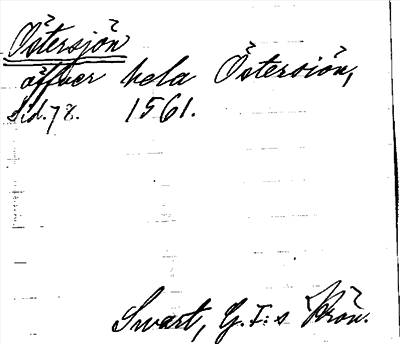 Östersjön
öffver hela Östersiön,
sid. 78. 1561.
Swart, G. I:s Krön.